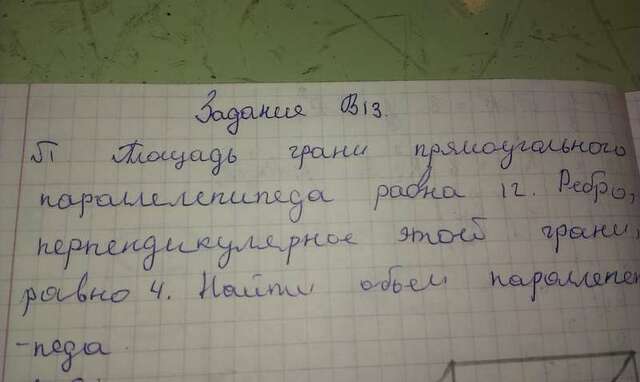 Задания В13.
№1 Площадь грани прямоугольного
параллелепипеда равна 12. Ребро,
перпендикулярное этой грани,
равно 4. Найти объем параллепе
-педа